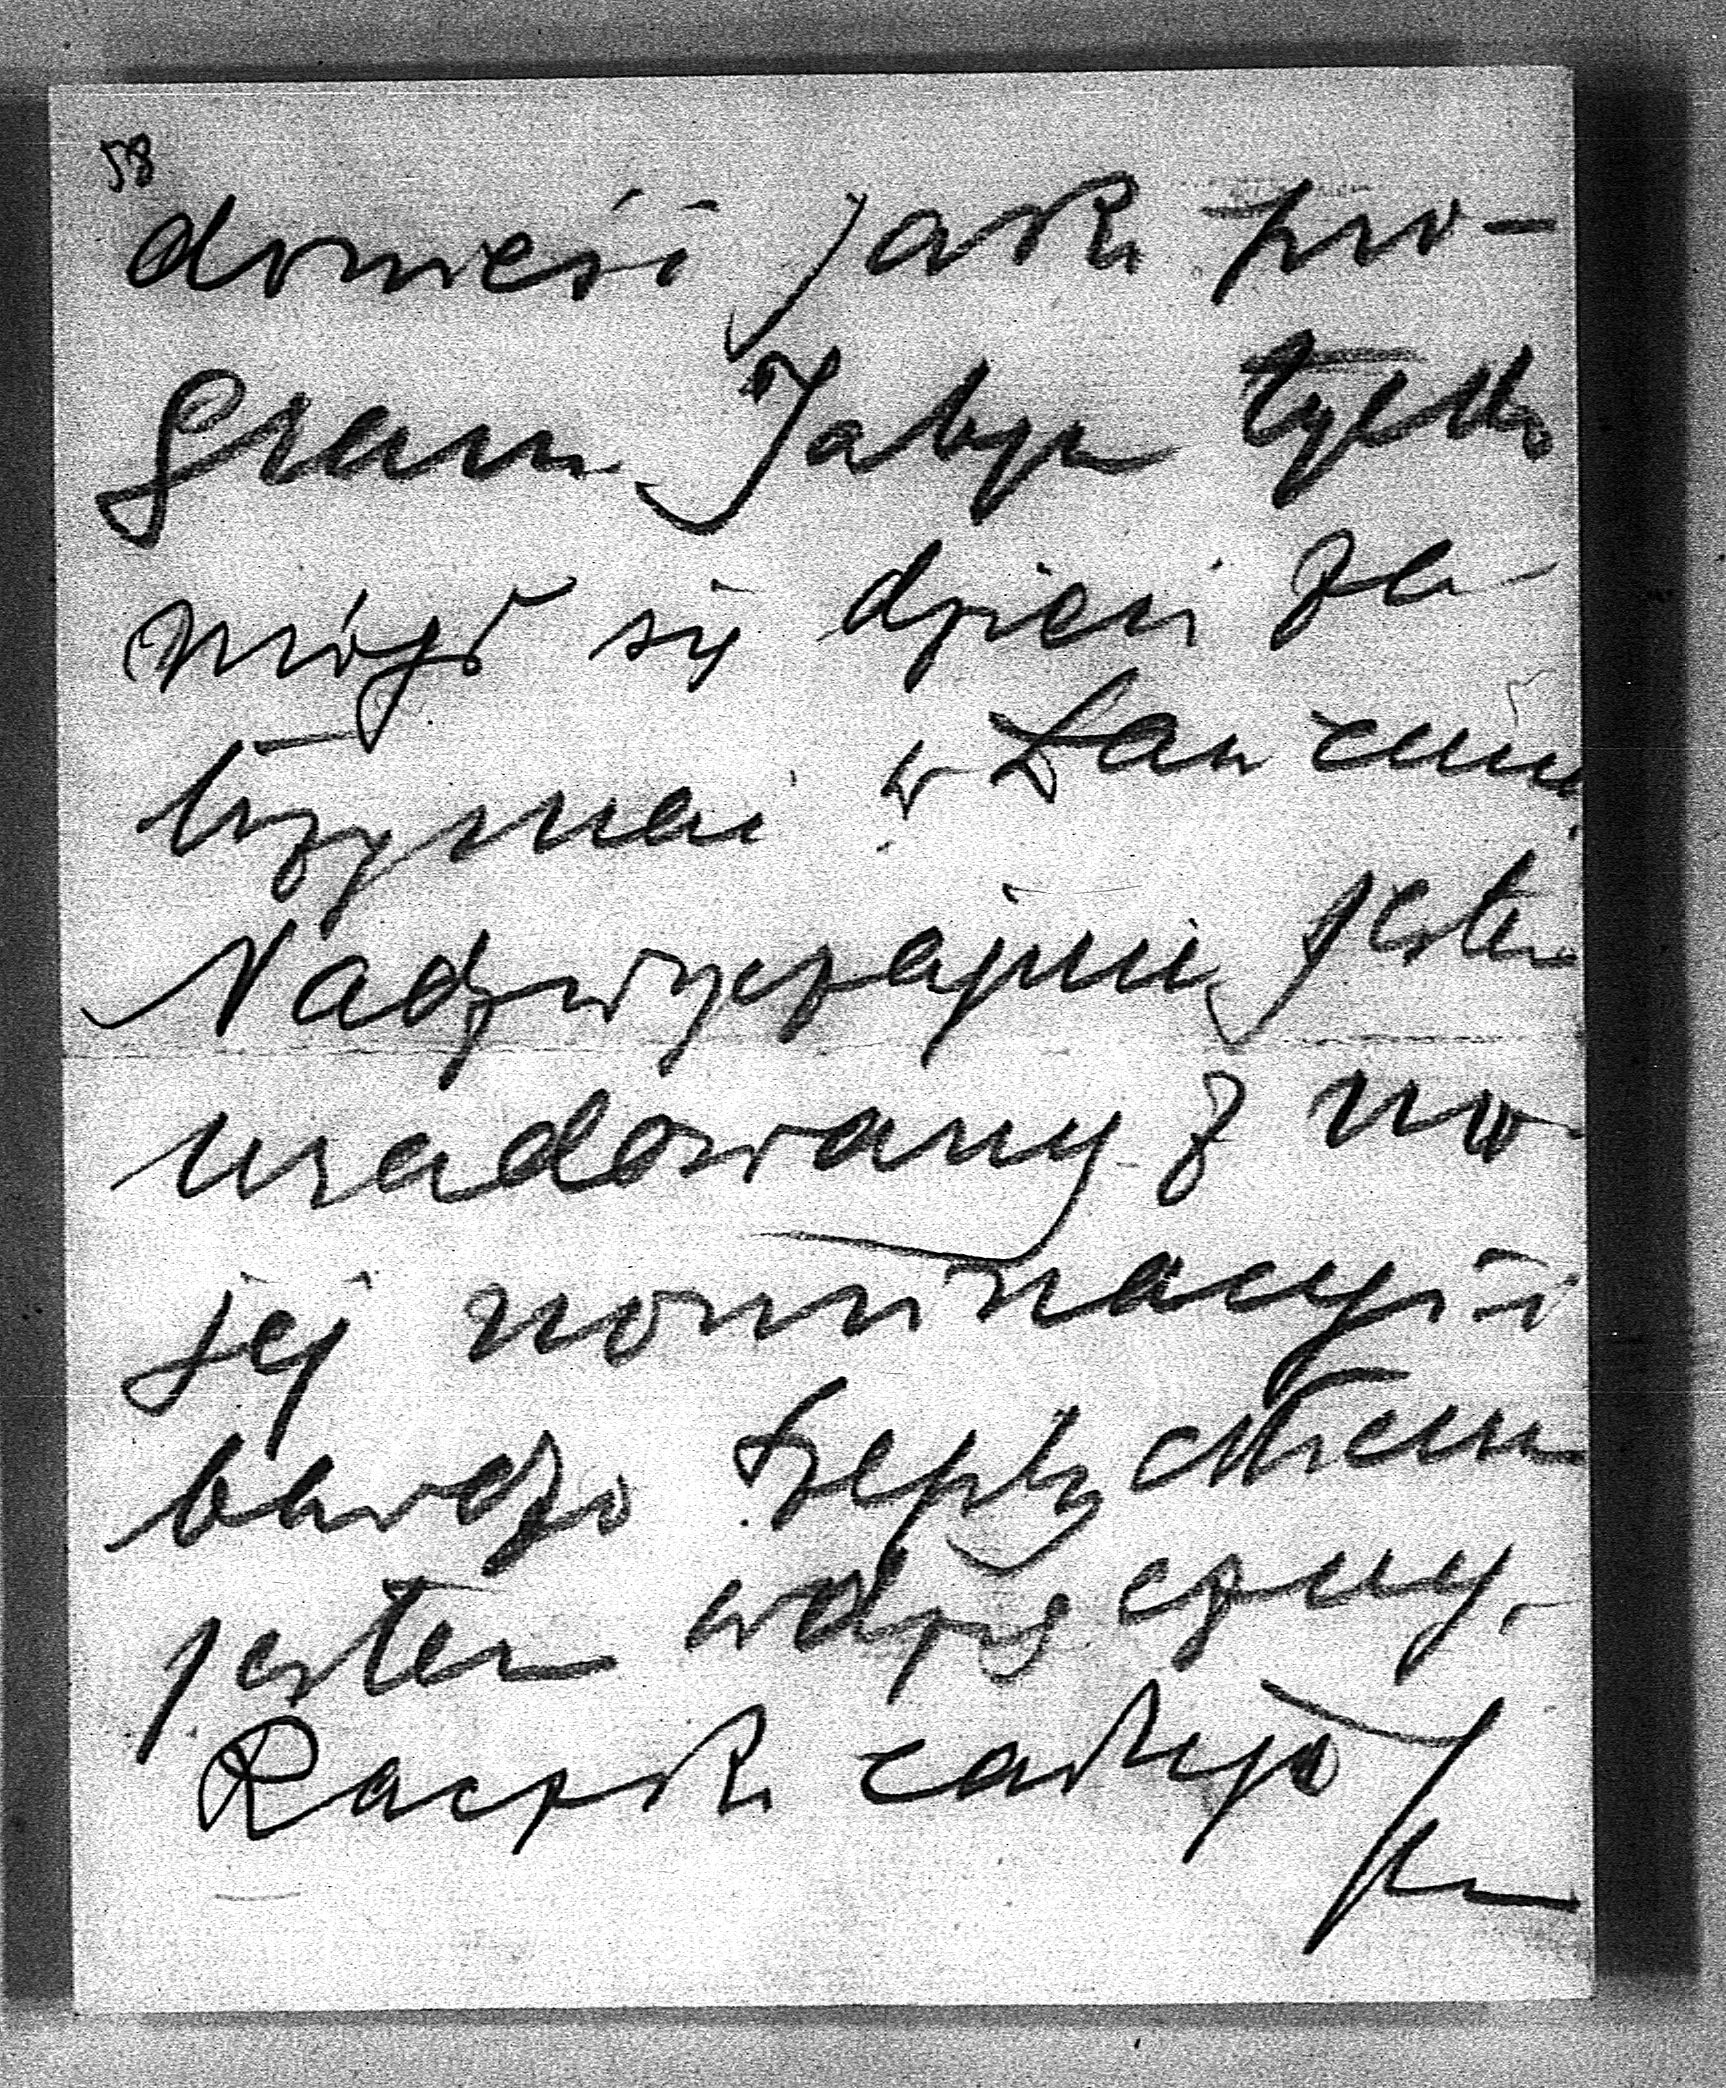 58
donieść jak pro-
gram. Jabym tylko
mógł się dzień za
trzymać w Łańcucie
Nadzwyczajnie jestem
uradowany z mo
jej nominacyi i
bardzo Septychiem
jestem wdzięczny.
Rączki całuję